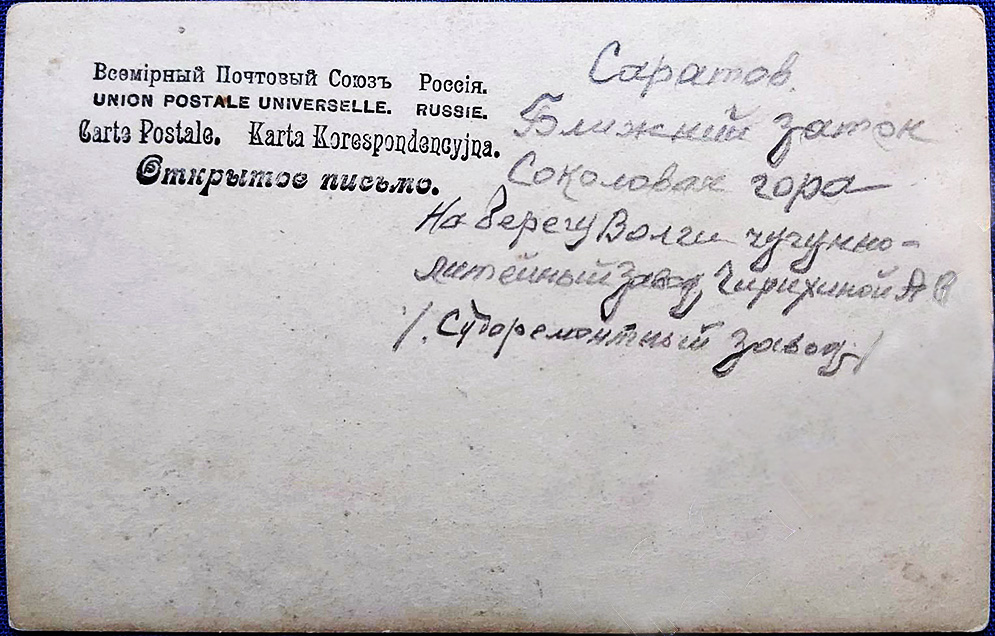 Всемірный Почтовый Союзъ Россія.
UNION POSTALE UNIVERSELLE. RUSSIE.
Carte Postale. Karta Korespondencyjna.
Открытое письмо.
Саратов.
Ближний затон
Соколовая гора
На берегу Волги чугунно-
литейный завод Чирихиной А В
/. Судоремонтный завод./